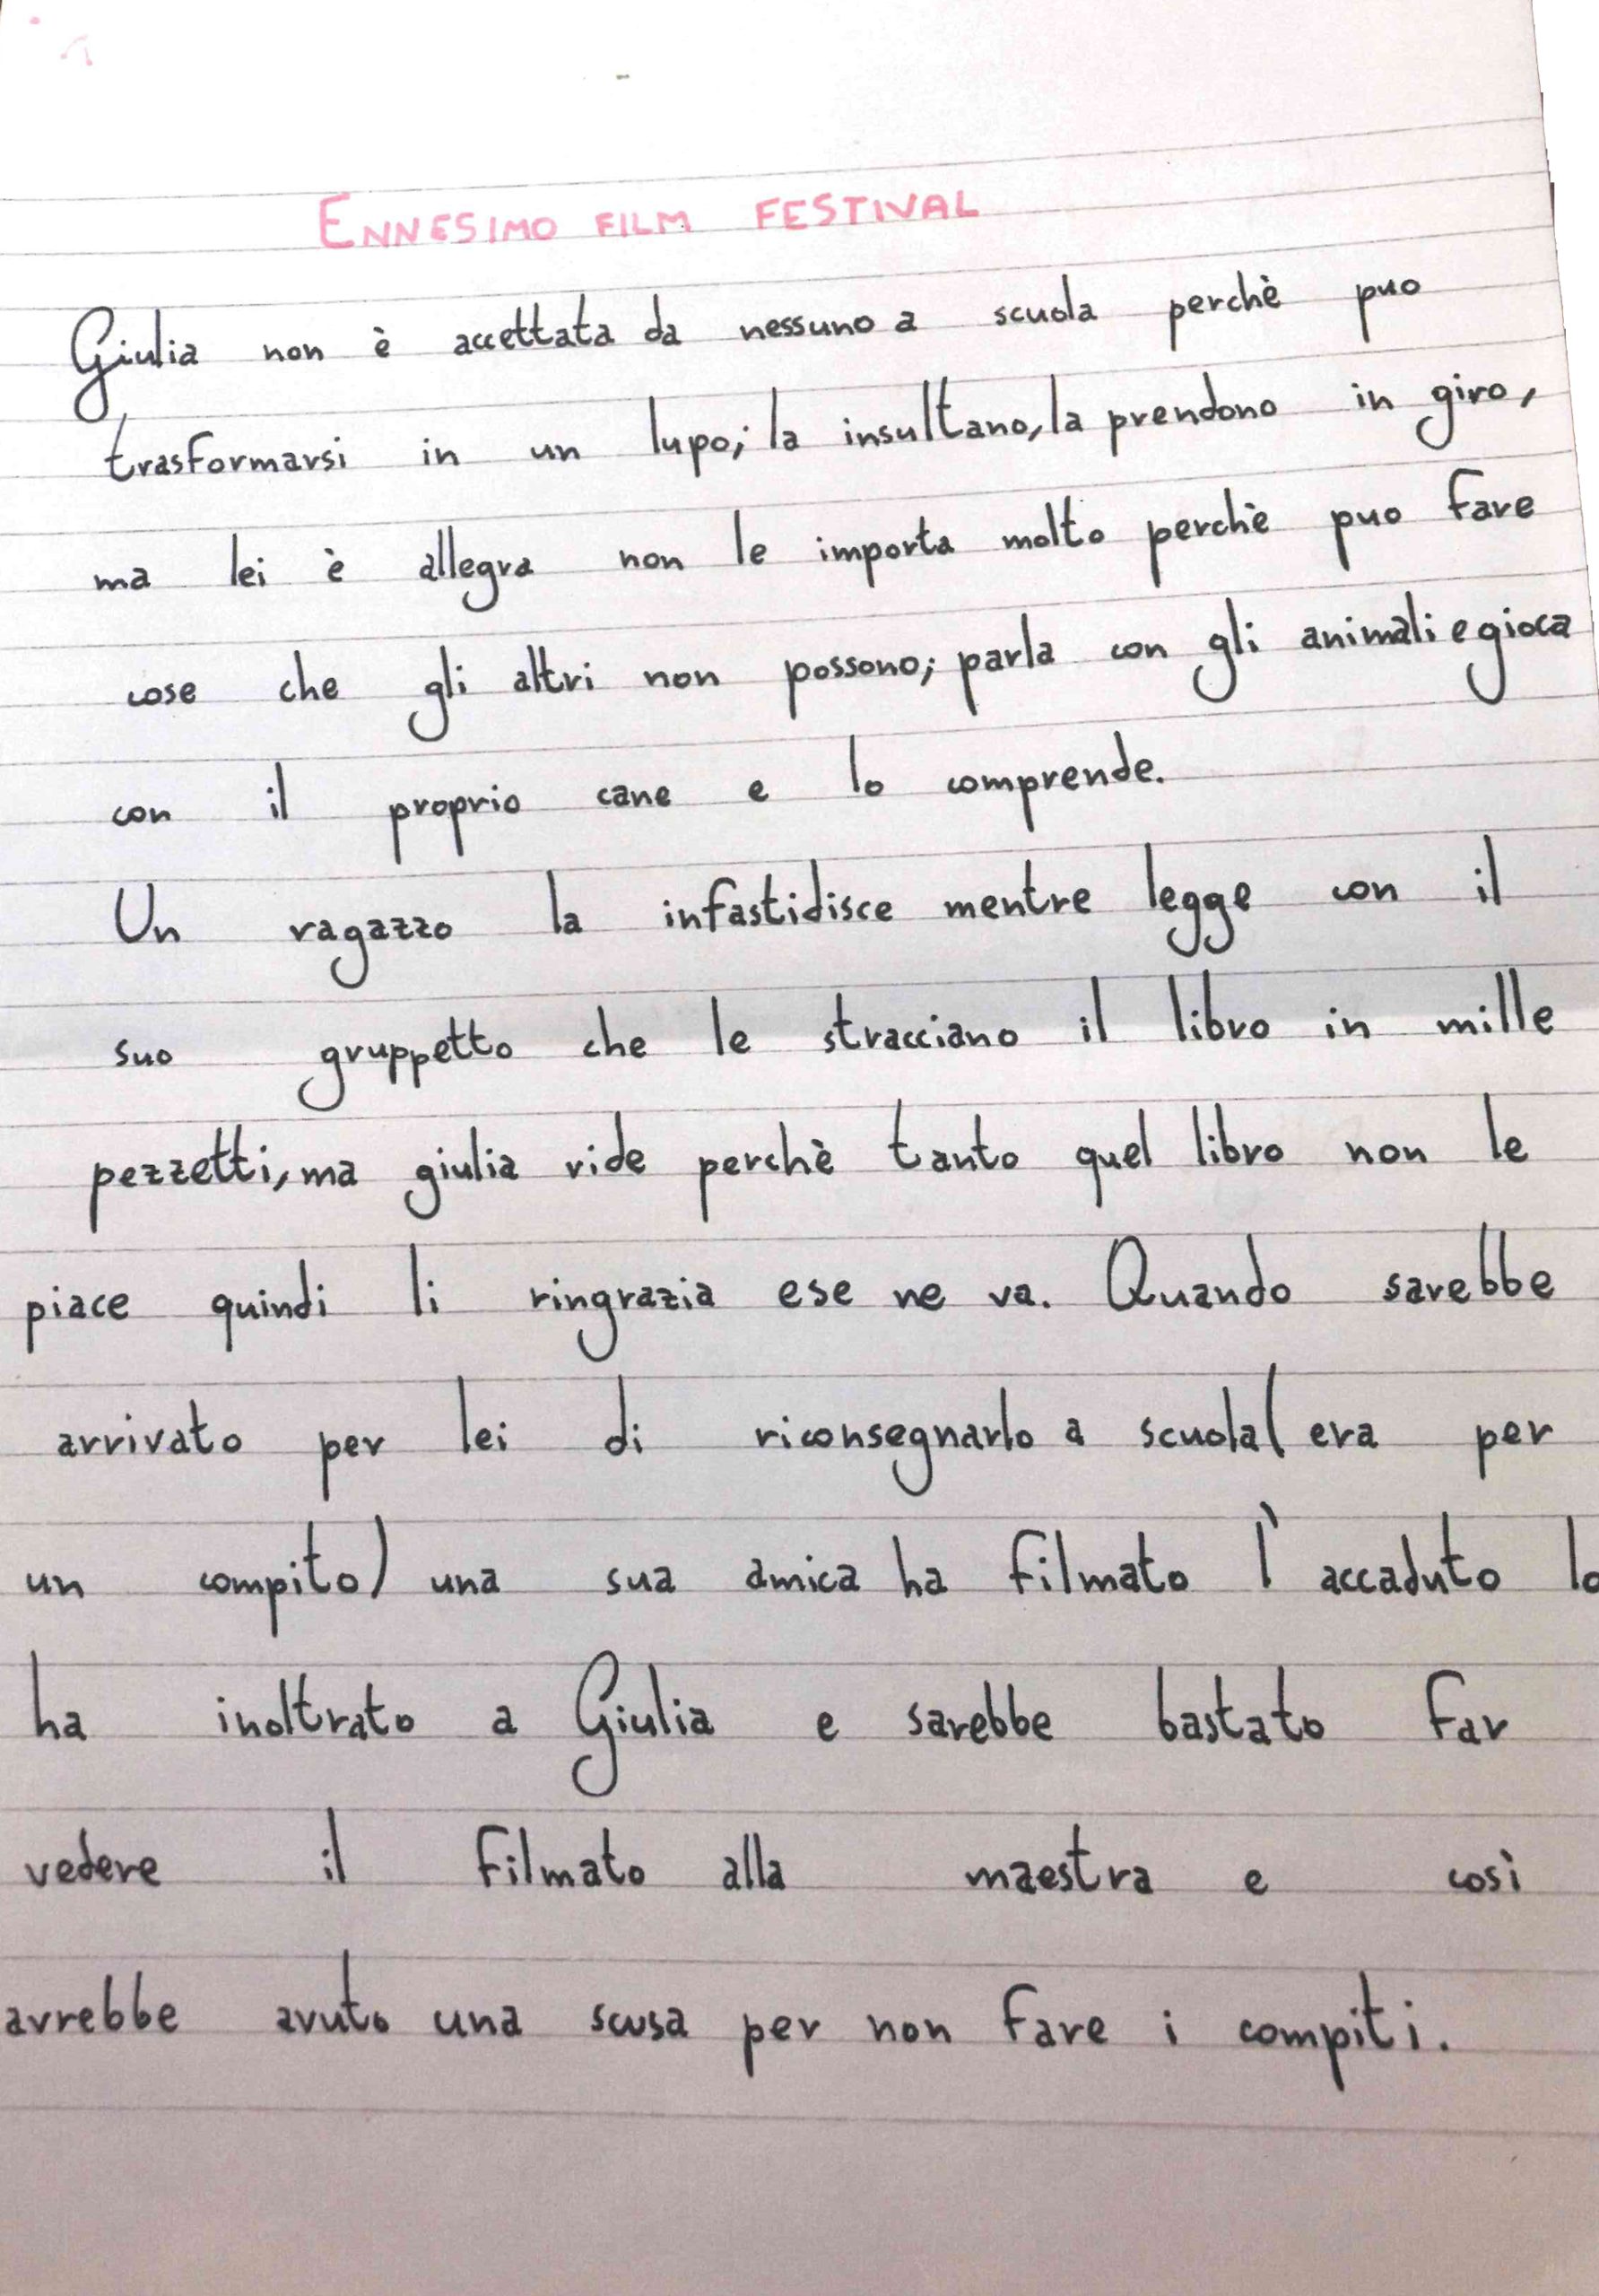 ENNESIMO FILM FESTIVAL
Giulia non è accettata da nessuno a scuola perchè puo
trasformarsi in un lupo; la insultano, la prendono in giro,
ma lei è allegra non le importa molto perchè puo fare
cose che gli altri non possono; parla con gli animali e gioca
con il proprio cane e lo comprende.
Un ragazzo la infastidisce mentre legge con il
suo gruppetto che le stracciano il libro in mille
pezzetti, ma giulia ride perchè tanto quel libro non le
piace quindi li ringrazia ese ne va. Quando sarebbe
arrivato per lei di riconsegnarlo a scuola ( era per
un compito) una sua amica ha filmato l'accaduto lo
ha inoltrato a Giulia e sarebbe bastato far
vedere il filmato alla maestra e così
avrebbe avuto una scusa per non fare i compiti.